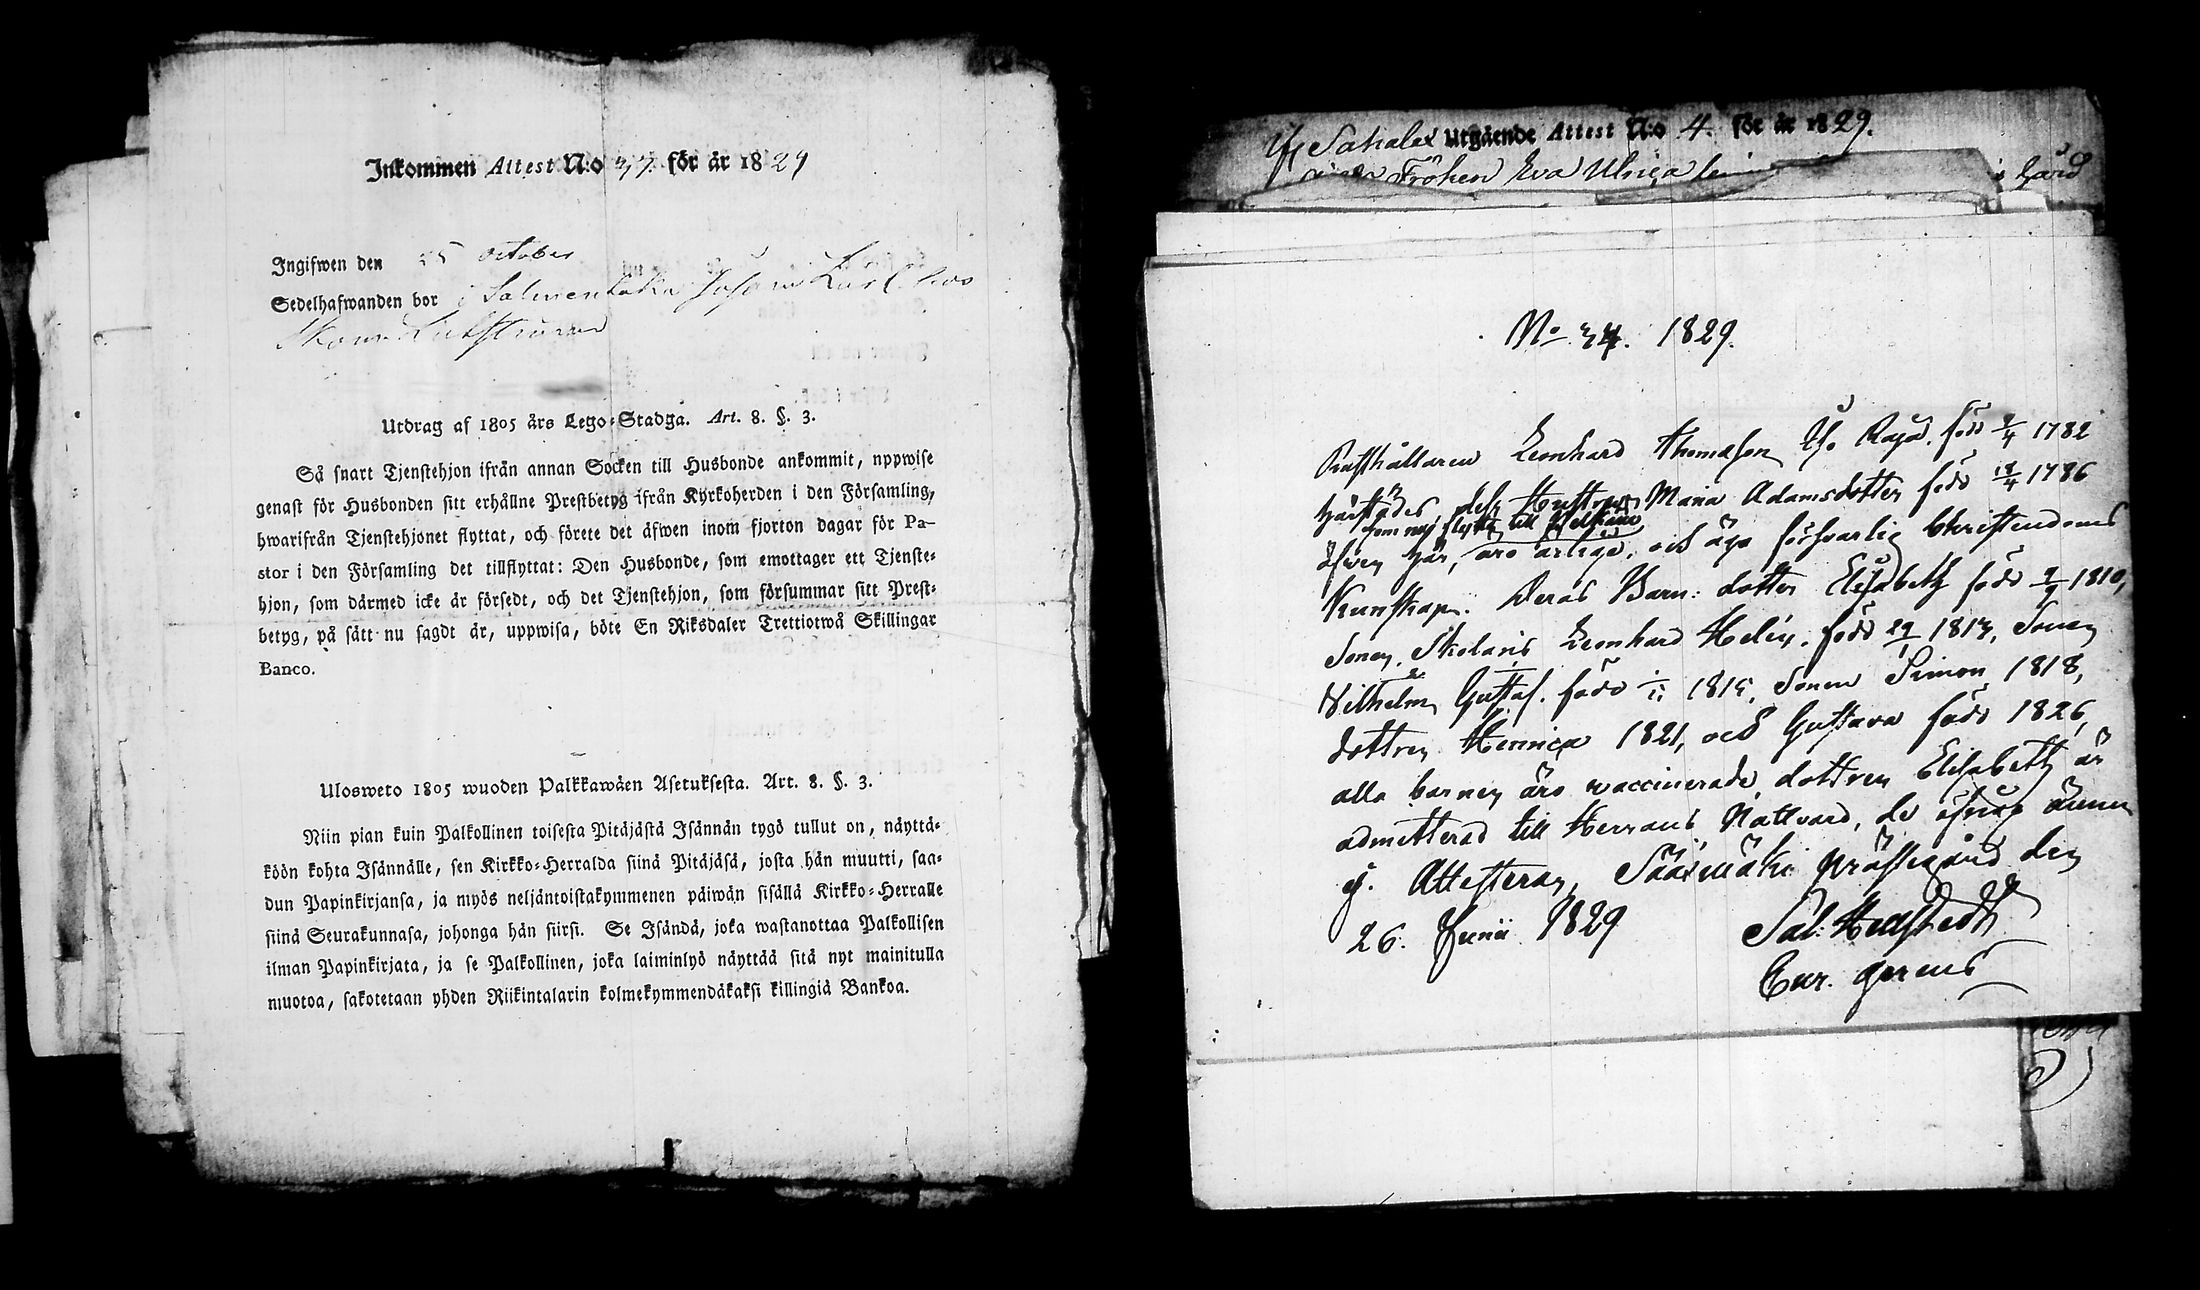 Inkommen Attest N:o 37. för år 1829
Ingifwen den 25 October
Sedelhafwanden bor i Salmentaka
Utdrag af 1805 års Lego-Stadga. Art. 8. §. 3.
Så snart Tjenstehjon ifrån annan Socken till Husbonde ankommit, uppwise
genast för Husbonden sitt erhållne Prestbetyg ifrån Kyrkoherden i den Församling,
hwarifrån Tjenstehjonet flyttat, och förete det äfwen inom fjorton dagar för Pa-
stor i den Församling det tillflyttat: Den Husbonde, som emottager ett Tjenste-
hjon, som därmed icke är försedt, och det Tjenstehjon, som försummar sitt Prest-
betyg, på sätt nu sagdt är, uppwisa, böte En Riksdaler Trettiotwå Skillingar
Banco.
Ulosweto 1805 wuoden Palkkawäen Asetuksesta. Art. 8. §. 3.
Niin pian kuin Palkollinen toisesta Pitäjästä Isännän tygö tullut on, näyttä-
köön kohta Isännälle, sen Kirkko-Herralda siinä Pitäjäsä, josta hän muutti, saa-
dun Papinkirjansa, ja myös neljäntoistakymmenen päiwän sisällä Kirkko-Herralle
siinä Seurakunnasa, johonga hän siirsi. Se Isändä, joka wastanottaa Palkollisen
ilman Papinkirjata, ja se Palkollinen, joka laiminlyö näyttää sitä nyt mainitulla
muotoa, sakotetaan yhden Riikintalarin kolmekymmendäkaksi killingiä Bankoa.
Utgående Attest N:o 4. för år 1829.
Fröken Eva Ulrica
gård
No 34. 1829.
Rusthållaren Leonhard Thomasson född 1782
härstädes, dess Hustru Maria Adamsdotter född 18/4 1786
som nu flytta till
äfven här, äro ärlige, och äga försvarlig Christendoms
Kunskap. Deras Barn: dotter Elisabeth född 1810,
Sonen, Skolaris Leonhard Helin, född 29/1 1813, Sonen
Vilhelm Gustaf. född 1815, Sonen Simon 1818,
dottren Henrica 1821, och Gustava född 1826,
alla barnen äro vaccinerade, dottren Elisabeth är
admitterad till Herrans Nattvard, de öfrige ännu
ej. Attesterar, Sääxmäki prästegård den
26. Junii 1829
Sal: Hedstedt
Cur. gerens